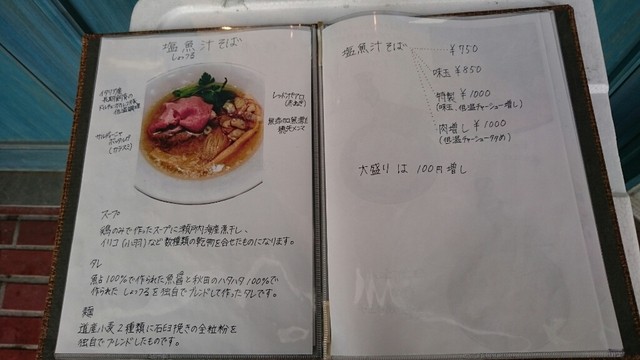 塩魚汁そば
しょっつる
イタリア産
低温調理
レッドオニオン
(赤ねぎ)
穂先メンマ
サルデーニャ
ボッタルガ
(カラスミ)
スープ
鶏のみで作ったスープに瀬戸内海産煮干し、
イリコ(小羽)など数種類の乾物を合せたものになります。
タレ
魚占100%で作られた魚醤と秋田のハタハタ100%で
作られたしょっつるを独自でブレンドして作ったタレです。
麺
道産小麦2種類に石臼挽きの全粒粉を
独自でブレンドしたものです。
塩魚汁そば ¥750
味玉 ¥850
特製 ¥1000
(味玉、低温チャーシュー増し)
肉増し ¥1000
(低温チャーシュー多め)
大盛りは 100円増し